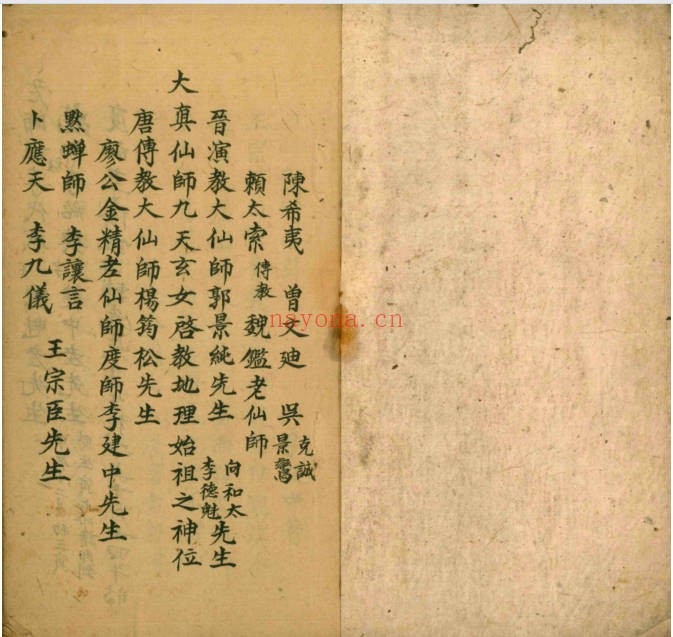 陳希夷 曾文迪 吳克誠景鸞
賴太索傳教 魏鑑老仙師
晉演教大仙師郭景純先生 向和太李德魁先生
大真仙師九天玄女啓教地理始祖之神位
唐傳教大仙師楊筠松先生
廖公金精老仙師度師李建中先生
黙蟬師 李讓言
卜應天 李九儀 王宗臣先生
nayona.cn